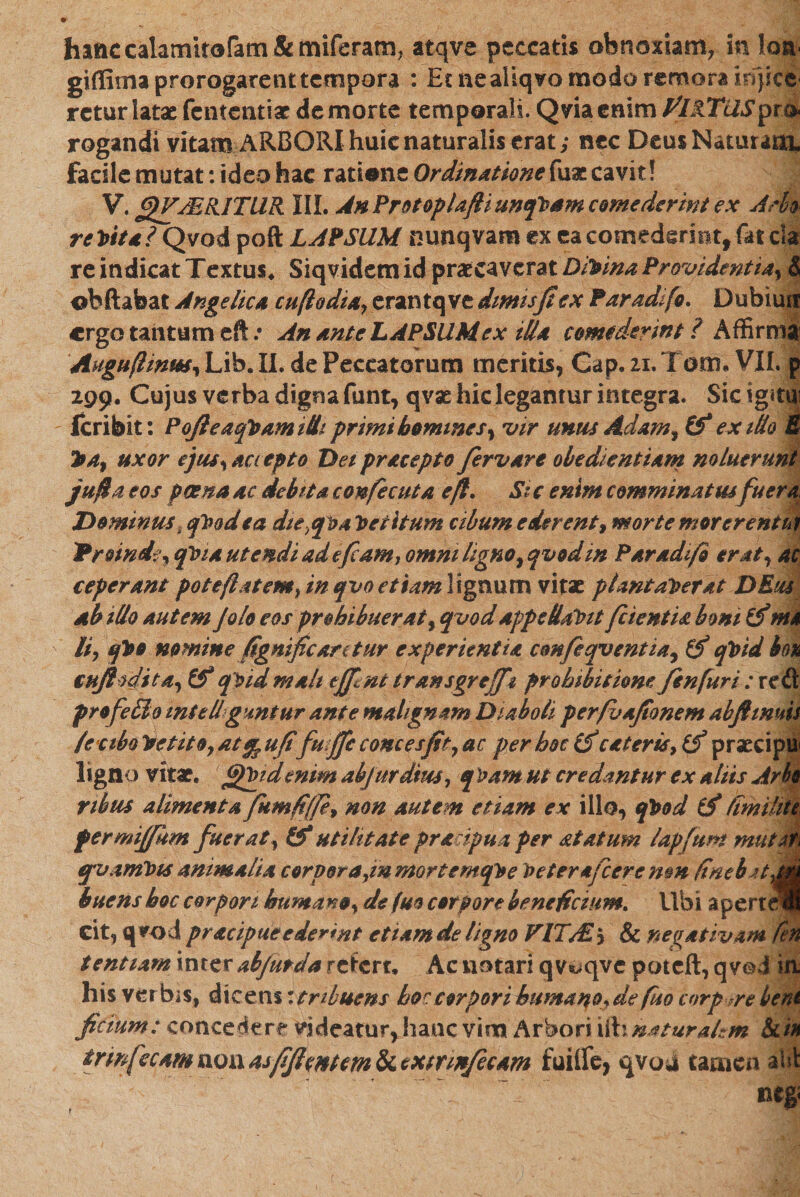 hanc calamitoſam & miſeram, atqve peccatis obnoxiam, in lon-
giſſima prorogarent tempora : Et ne aliqvo modo remora injice-
retur latæ ſententiæ de morte temporali. Qvia enim VIRTUS pro-
rogandi vitam ARBORI huic naturalis erat; nec Deus Naturam
facile mutat: ideo hac ratione Ordinatione ſuæ cavit!
V. QVÆRITUR III. An Protoplaſti unqvam comederint ex Arbo
re vitæ? Qvod poſt LAPSUM nunqvam ex ea comederint, ſat cla
re indicat Textus. Siqvidem id præcaverat Divina Providentia, &
obſtabat Angelica cuſtodia, erantqve dimisſi ex Paradiſo. Dubium
ergo tantum eſt: An ante LAPSUM ex illa comederint ? Affirmat
Auguſtinus, Lib. II. de Peccatorum meritis, Cap. 21. Tom. VII. p
299. Cujus verba digna ſunt, qvæ hic legantur integra. Sic igitur
ſcribit: Poſteaqvam illi primi homines, vir unus Adam, & ex illo E
va, uxor ejus, accepto Dei præcepto ſervare obedientiam noluerunt
juſta eos pœna ac debita conſecuta eſt. Sic enim comminatus fuerat
Dominus, qvod ea die, qva vetitum cibum ederent, morte morerentur
Proinde, qvia utendi ad eſcam, omni ligno, qvod in Paradiſo erat, ac
ceperant poteſtatem, in qvo etiam lignum vitæ plantaverat DEus
ab illo autem ſolo eos prohibuerat, qvod appellavit ſcientiæ boni & ma
li, qvo nomine ſignificaretur experientiæ conſeqventia, & qvid boni
cuſtodita, & qvid mali eſſent transgreſſi prohibitione ſenſuri: rect
profecto intelliguntur ante malignam Diaboli perſvaſionem abſtinuiſ
ſe cibo vetito, atq; uſi fuiſſe concesſit, ac per hoc & cæteris, & præcipu
ligno vitæ. Qvid enim abſurdius, qvam ut credantur ex aliis Arbo
ribus alimenta ſumſiſſe, non autem etiam ex illo, qvod & ſimilite
permiſſum fuerat, & utilitate præcipua per ætatum lapſum mutari
qvamvis animalia corpora, in mortemqve veteraſcere non ſinebat, tri
buens hoc corpori humano, de ſuo corpore beneficium. Ubi aperte di
cit, qvod præcipue ederint etiam de ligno VITÆ; & negativam ſen
tentiam inter abſurda refert. Ac notari qvoqve poteſt, qvod in
his verbis, dicens: tribuens hoc corpori humano, de ſuo corpore bene
ficium: concedere videatur, hanc vim Arbori iſti naturalem & in
trinſecam non asſiſtentem & extrinſecam fuiſſe, qvod tamen alii
neg-